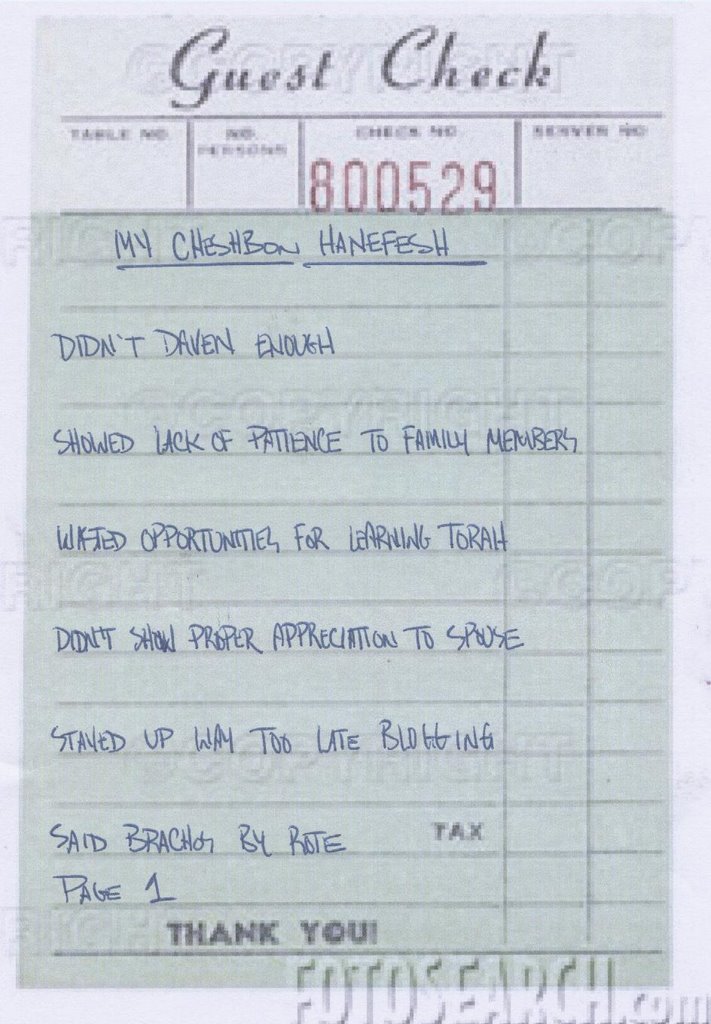 Guest Check
TABLE NO. NO. PERSONS CHECK NO. SERVER NO
800529
MY CHESHBON HANEFESH
DIDN'T DAVEN ENOUGH
SHOWED LACK OF PATIENCE TO FAMILY MEMBERS
WASTED OPPORTUNITIES FOR LEARNING TORAH
DIDN'T SHOW PROPER APPRECIATION TO SPOUSE
STAYED UP WAY TOO LATE BLOGGING
SAID BRACHOS BY ROTE TAX
PAGE 1
THANK YOU!
FOTOSEARCH.com